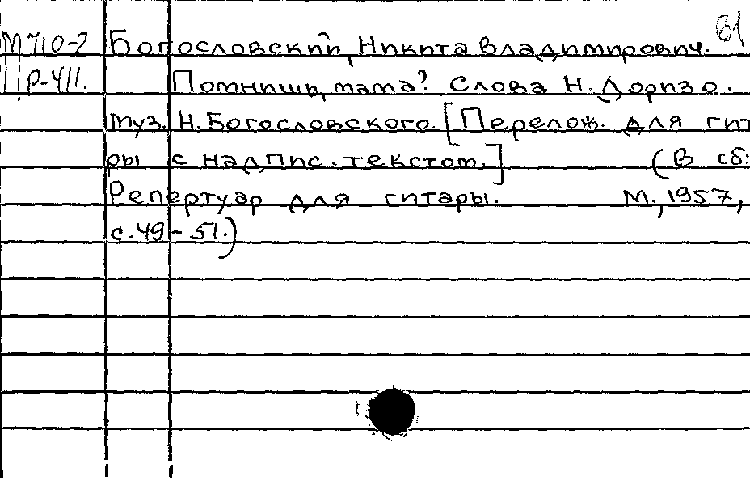 61
М710-2 Богословский, Никита Владимирович.
Р-411. Помнишь, мама? Слова Н. Доризо.
Муз. Н. Богословского. [Перелож. для гит
ры с надпис. текстом.] (В сб:
Репертуар для гитары. М., 1957,
с.49-51.)